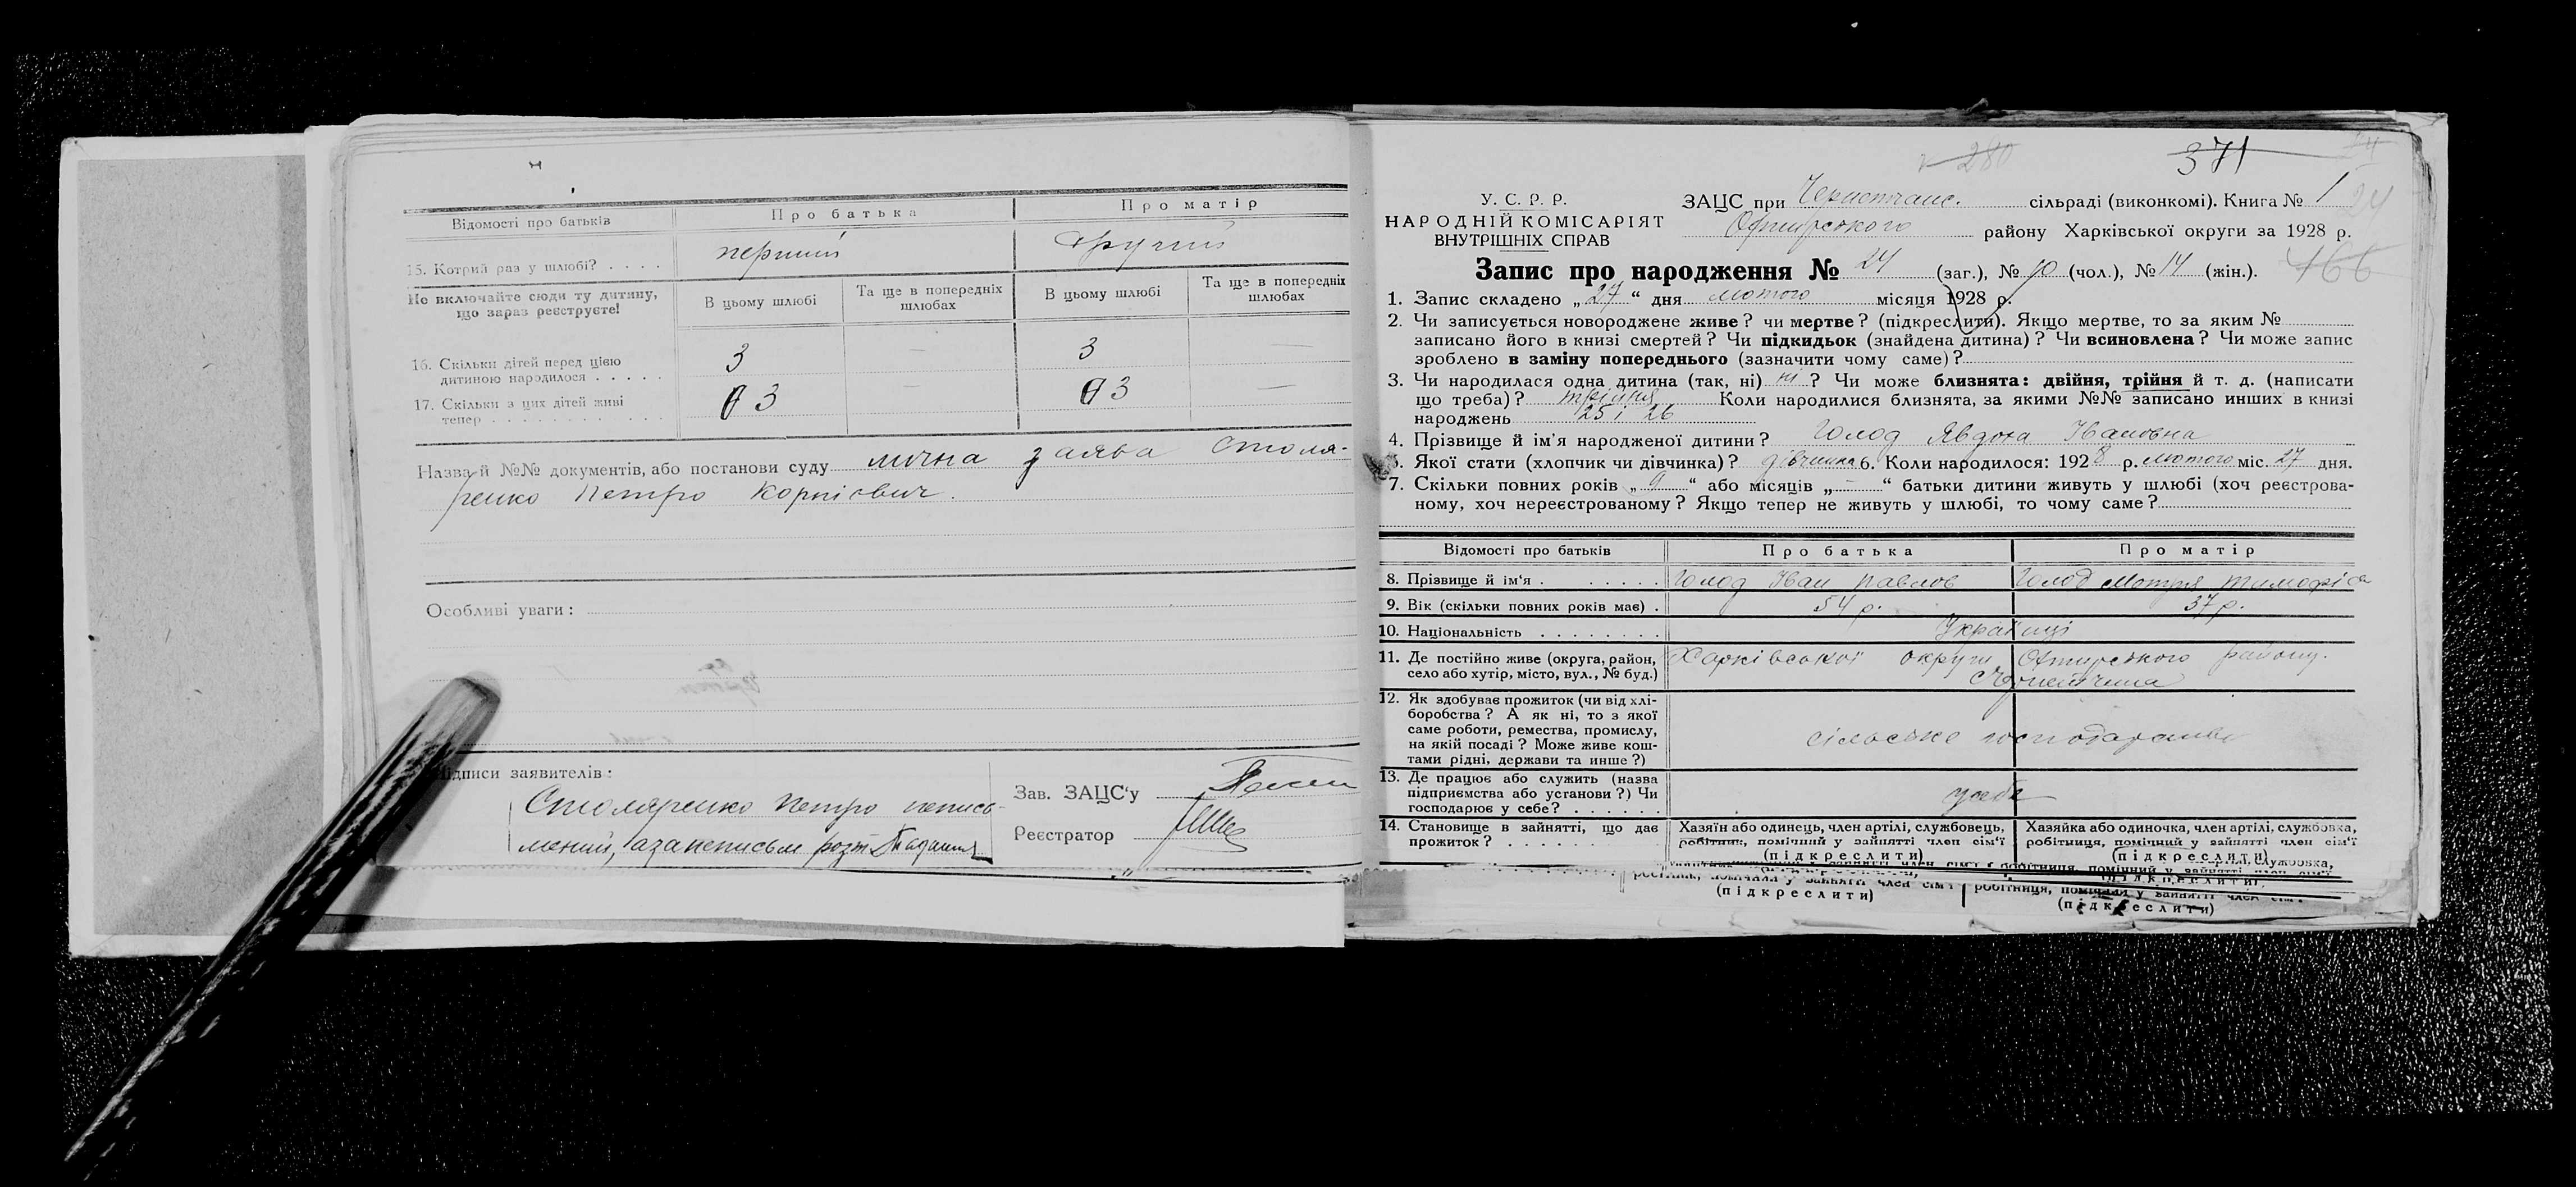 Відомості про батьків
Про батька
Про матір
15. Котрий раз у шлюбі? . . . .
перший
другий
Не включайте сюди ту дитину,
що зараз реєструєте!
В цьому шлюбі
Та ще в попередніх
шлюбах
В цьому шлюбі
Та ще в попередніх
шлюбах
16. Скільки дітей перед цією
дитиною народилося . . . . .
3
—
3
—
17. Скільки з цих дітей живі
тепер . . . . . . . . . . . .
3
—
3
—
Назва й №№ документів, або постанови суду лична заява Столя-
ренко Петро Корнієвич.
Особливі уваги:
Підписи заявителів:
Столяренко Петро неписьменний,
Зав. ЗАЦС'у
Реєстратор
280
371
24
У. С. Р. Р.
НАРОДНІЙ КОМІСАРІЯТ
ВНУТРІШНІХ СПРАВ
ЗАЦС при сільраді (виконкомі). Книга № 1
району Харківської округи за 1928 р.
466
Запис про народження № 24 (заг.), № 10 (чол.), № 14 (жін.).
1. Запис складено „27“ дня лютого місяця 1928 р.
2. Чи записується новороджене живе? чи мертве? (підкреслити). Якщо мертве, то за яким №
записано його в книзі смертей? Чи підкидьок (знайдена дитина)? Чи всиновлена? Чи може запис
зроблено в заміну попереднього (зазначити чому саме)?
3. Чи народилася одна дитина (так, ні) ні? Чи може близнята: двійня, трійня й т. д. (написати
що треба)? трійня Коли народилися близнята, за якими №№ записано инших в книзі
народжень 25 і 26
4. Прізвище й ім'я народженої дитини? Голод Явдоха Івановна
5. Якої стати (хлопчик чи дівчинка)? дівчинка 6. Коли народилося: 1928 р. лютого міс. 27 дня.
7. Скільки повних років „9“ або місяців „—“ батьки дитини живуть у шлюбі (хоч реєстрова-
ному, хоч нереєстрованому? Якщо тепер не живуть у шлюбі, то чому саме?
Відомості про батьків
Про батька
Про матір
8. Прізвище й ім'я . . . . . .
Голод Іван Павлов
Голод Мотря Тимофієв
9. Вік (скільки повних років має) .
54 р.
37 р.
10. Національність . . . . . . . .
Українці
11. Де постійно живе (округа, район,
село або хутір, місто, вул., № буд.)
Харківської округи Охтирського району.
12. Як здобуває прожиток (чи від хлі-
боробства? А як ні, то з якої
саме роботи, ремества, промислу,
на якій посаді? Може живе кош-
тами рідні, держави та инше?)
сільське господарство
13. Де працює або служить (назва
підприємства або установи?) Чи
господарює у себе? . . . . . .
у себе
14. Становище в зайнятті, що дає
прожиток? . . . . . . . . .
Хазяїн або одинець, член артілі, службовець,
робітник, помічний у зайнятті член сім'ї
(підкреслити)
Хазяйка або одиночка, член артілі, службовка,
робітниця, помічний у зайнятті член сім'ї
(підкреслити)
(підкреслити)
(підкреслити)